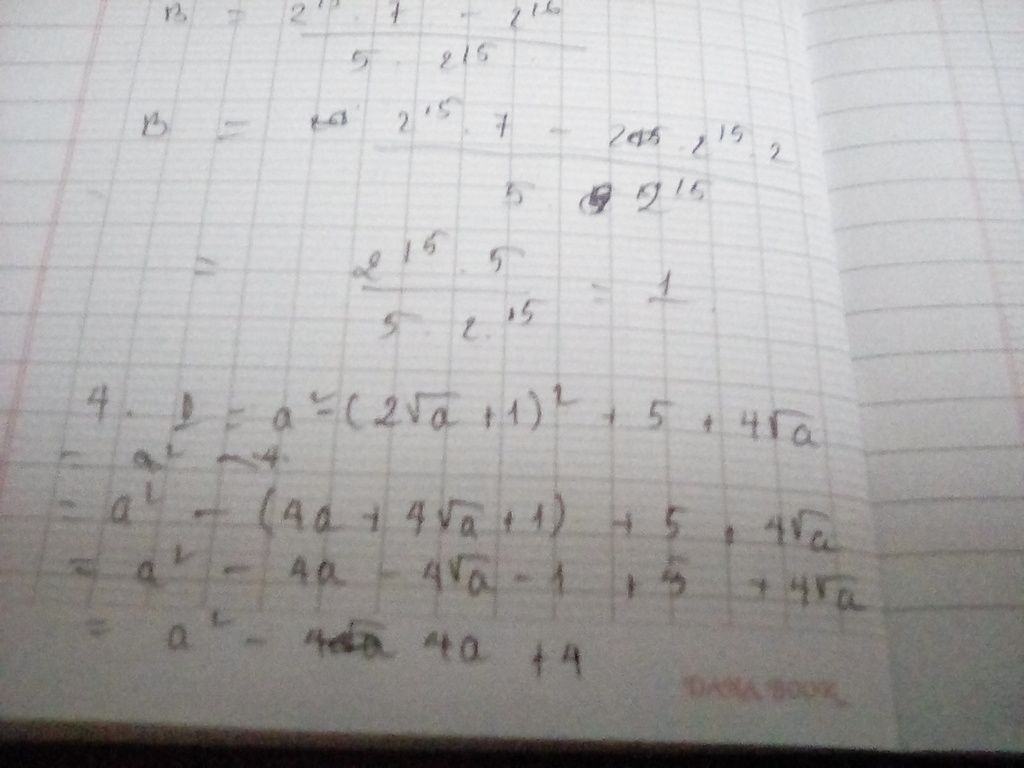 B = 2¹⁵ . 7 - 2¹⁶
5 . 2¹⁵
B = 2¹⁵ . 7 - 2¹⁵ . 2
5 . 2¹⁵
= 2¹⁵ . 5 = 1
5 . 2.¹⁵
4. D = a² - (2√a + 1)² + 5 + 4√a
= a² - 4
= a² - (4a + 4√a + 1) + 5 + 4√a
= a² - 4a - 4√a - 1 + 5 + 4√a
= a² - 4a + 4
DANA BOOK